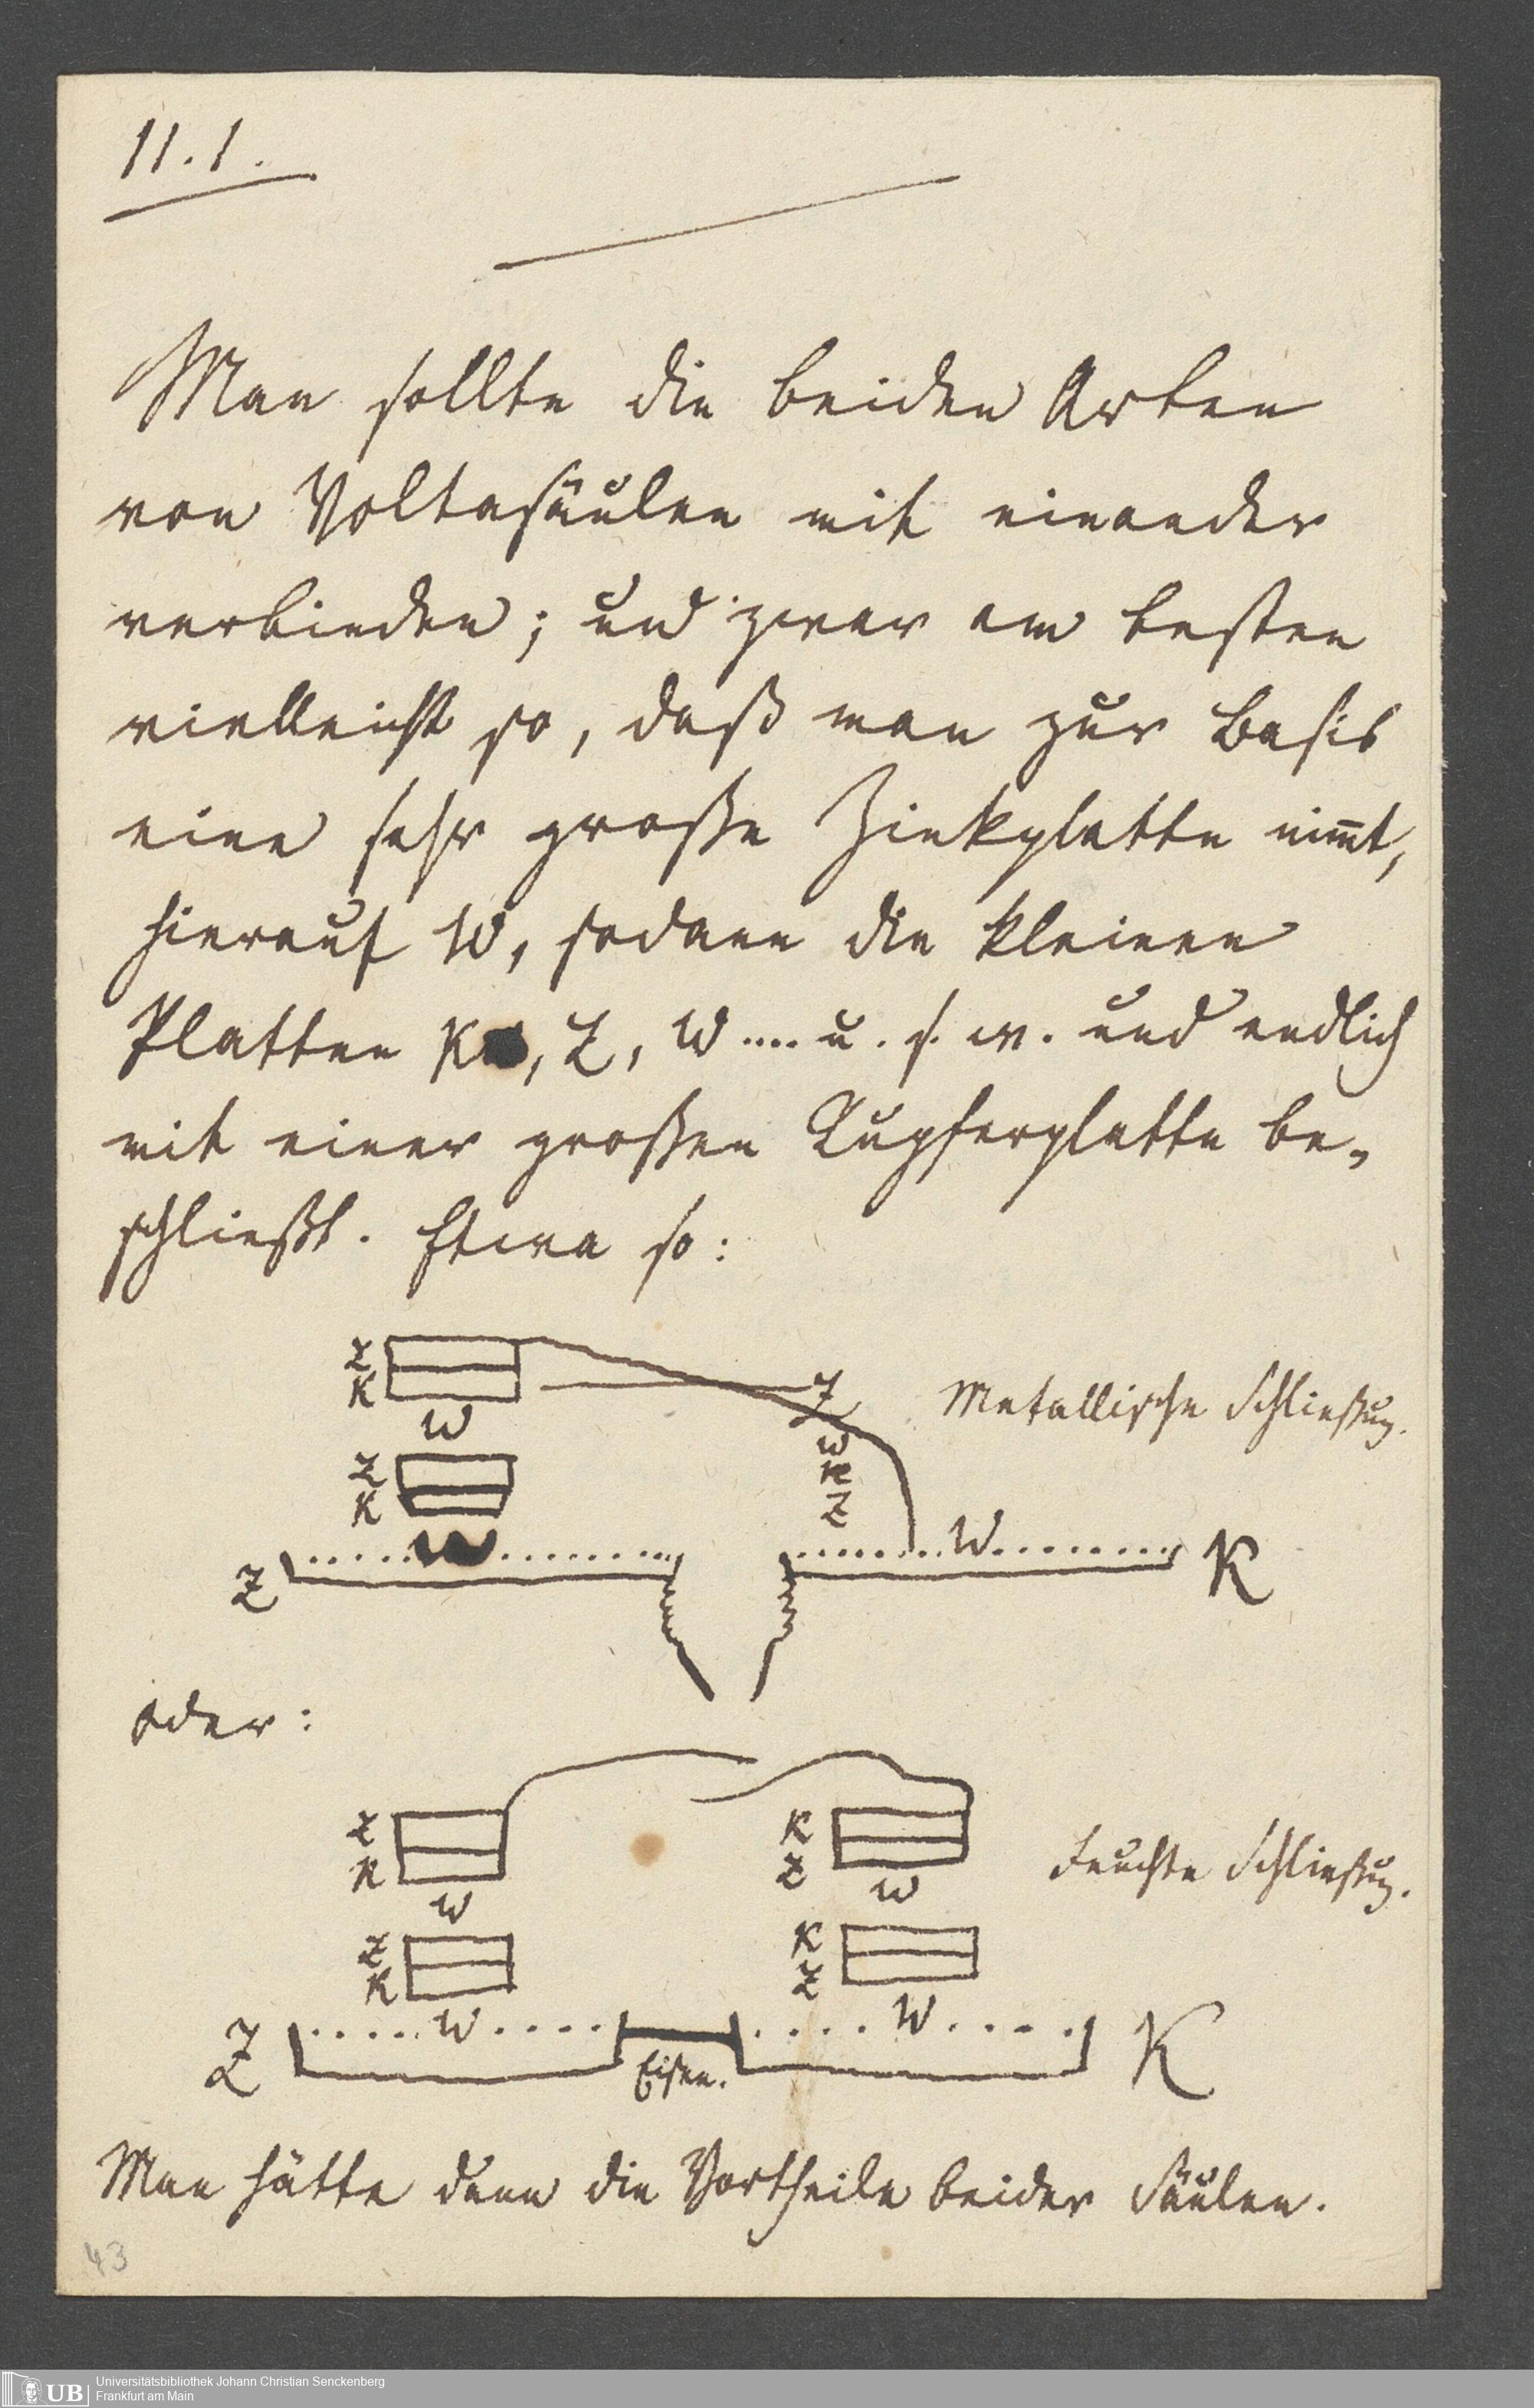 11.1.
Man sollte die beiden Arten
von Voltasäulen mit einander
verbinden; und zwar am besten
vielleicht so, daß man zur Basis
eine sehr große Zinkplatte nim̅t,
hierauf W, sodann die kleinen
Platten K, Z, W .... u. s. w. und endlich
mit einer großen Kupferplatte be-
schließt. Etwa so:
Z
K
W
Z
K
W
Z
Z
W
K
Z
W
K
Metallische Schließug.
oder:
Z
K
W
Z
K
W
Z
Eisen.
K
Z
W
K
Z
W
K
Feuchte Schließug.
Man hätte dann die Vortheile beider Säulen.
43
UB
Universitätsbibliothek Johann Christian Senckenberg
Frankfurt am Main